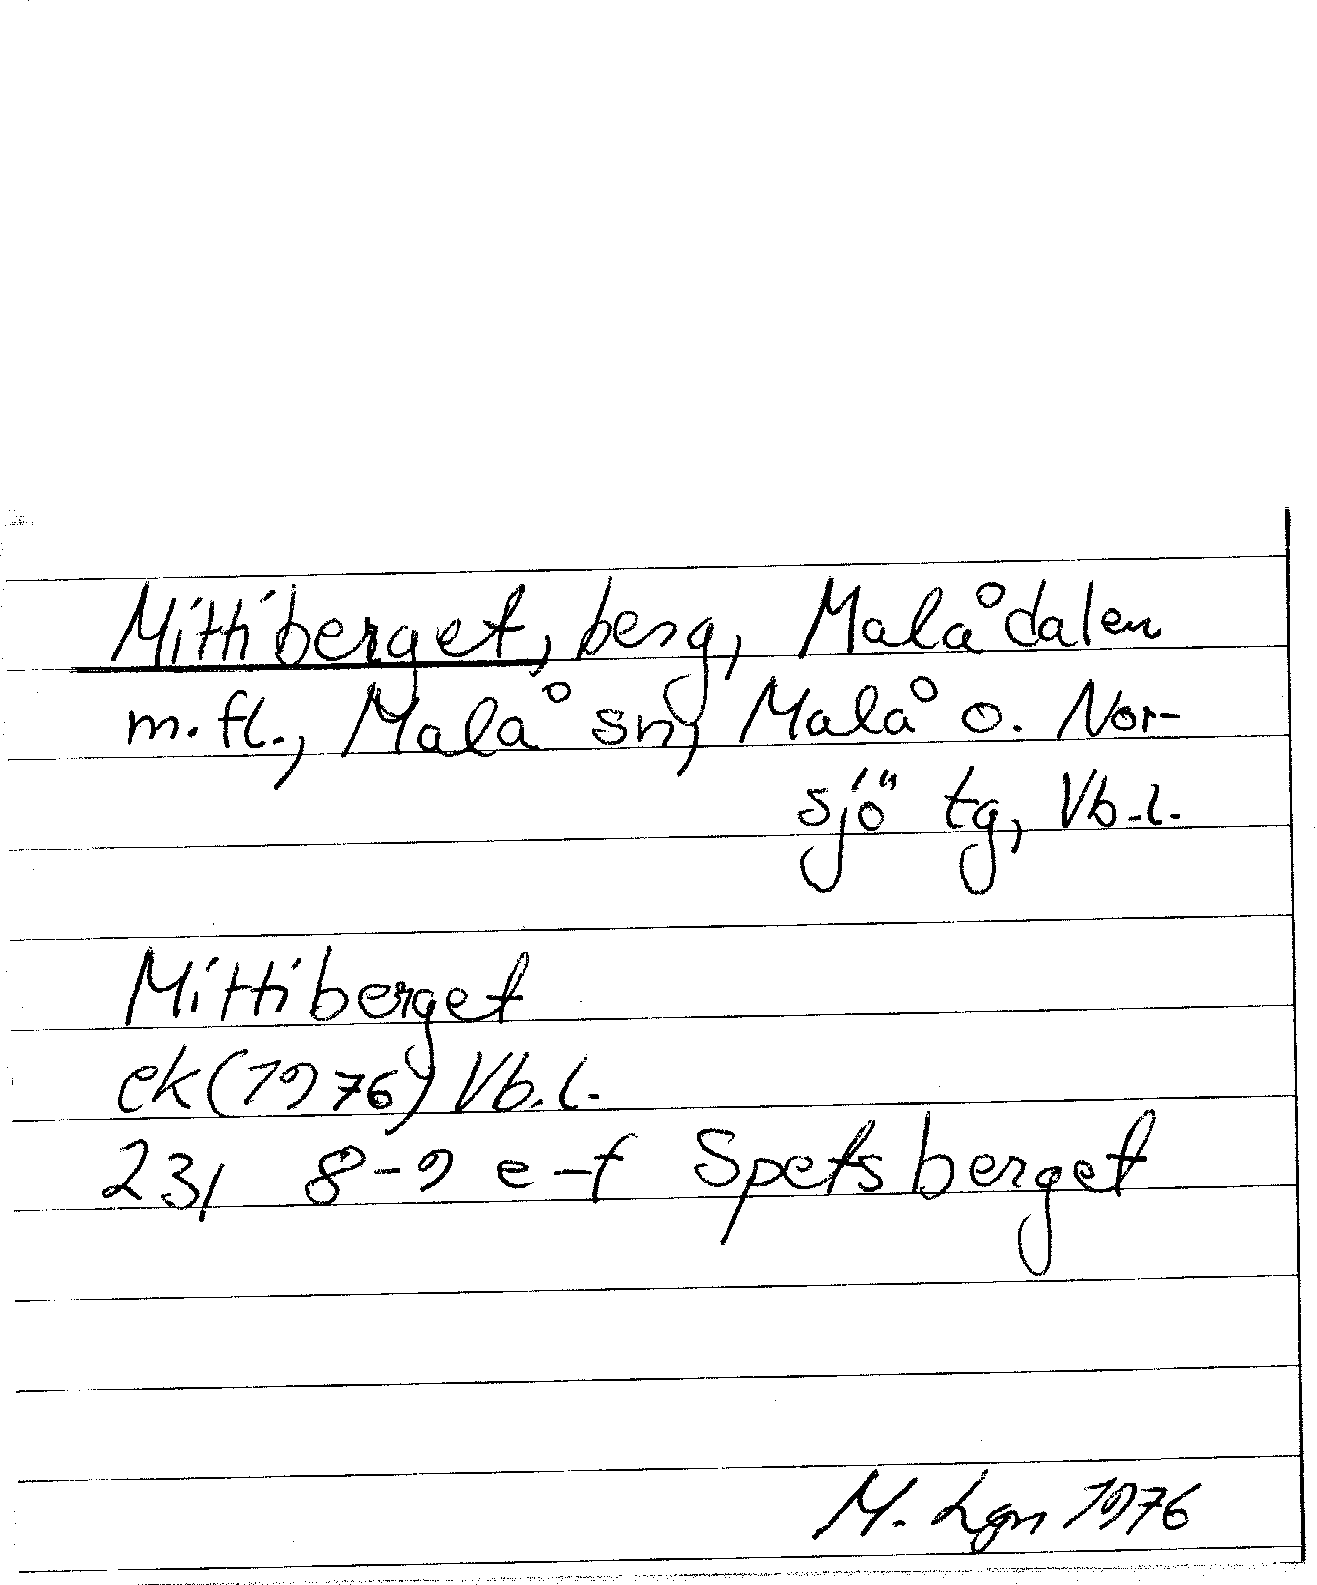 Mittiberget, berg, Malådalen
m.fl., Malå sn, Malå o. Nor-
sjö tg, Vb.l.
Mittiberget
ek (1976) Vb.l.
23I 8-9 e-f Spetsberget
M. Lgn 1976